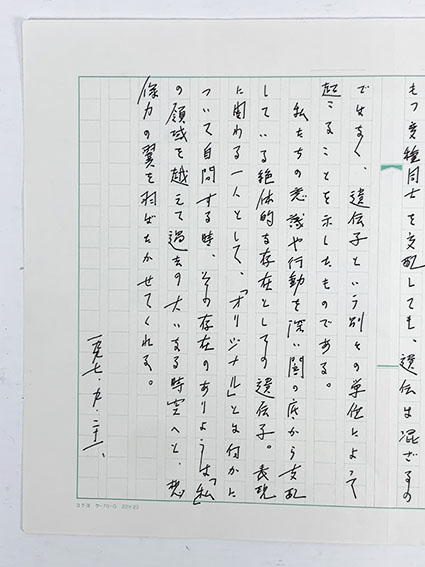 もつ変種同士を交配しても、遺伝は混ざるの
ではなく、遺伝子という別々の単位によって
起こることを示したものである。
私たちの意識や行動を深い闇の底から支配
している絶体的な存在としての遺伝子。表現
に関わる一人として、「オリジナル」とは何かに
ついて自問する時、その存在のありようは「私」
の領域を越えて過去の大いなる時空へと、想
像力の翼を羽ばたかせてくれる。
一九九七・九・二十一、
コクヨ ケ-70-G 20×20